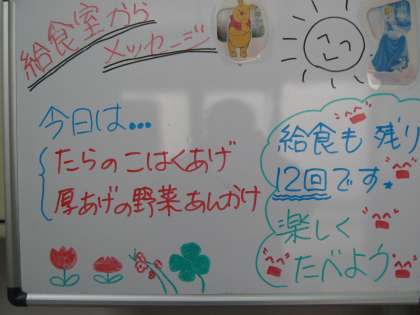 給食室から
メッセージ
今日は...
たらのこはくあげ
厚あげの野菜あんかけ
給食も残り
12回です★
楽しく
たべよう